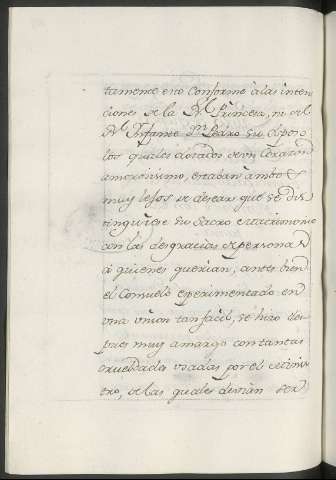 tamente eco conforme à las inten
ciones de la Rl. Princesa, ni del
Rl. Infante Dn. Pedro su esposo
los quales dotados de un Corazon
amorosissimo, estaban ambos
muy lejos de desear que se dis
tinguiese su Sacro matrimonio
con las desgracias de personas
à quienes querian, antes bien
el Consuelo esperimentado en
una union tan facil, se hizo des
pues muy amargo con tantas
crueldades usadas por el Minis
tro, de las quales devian ser